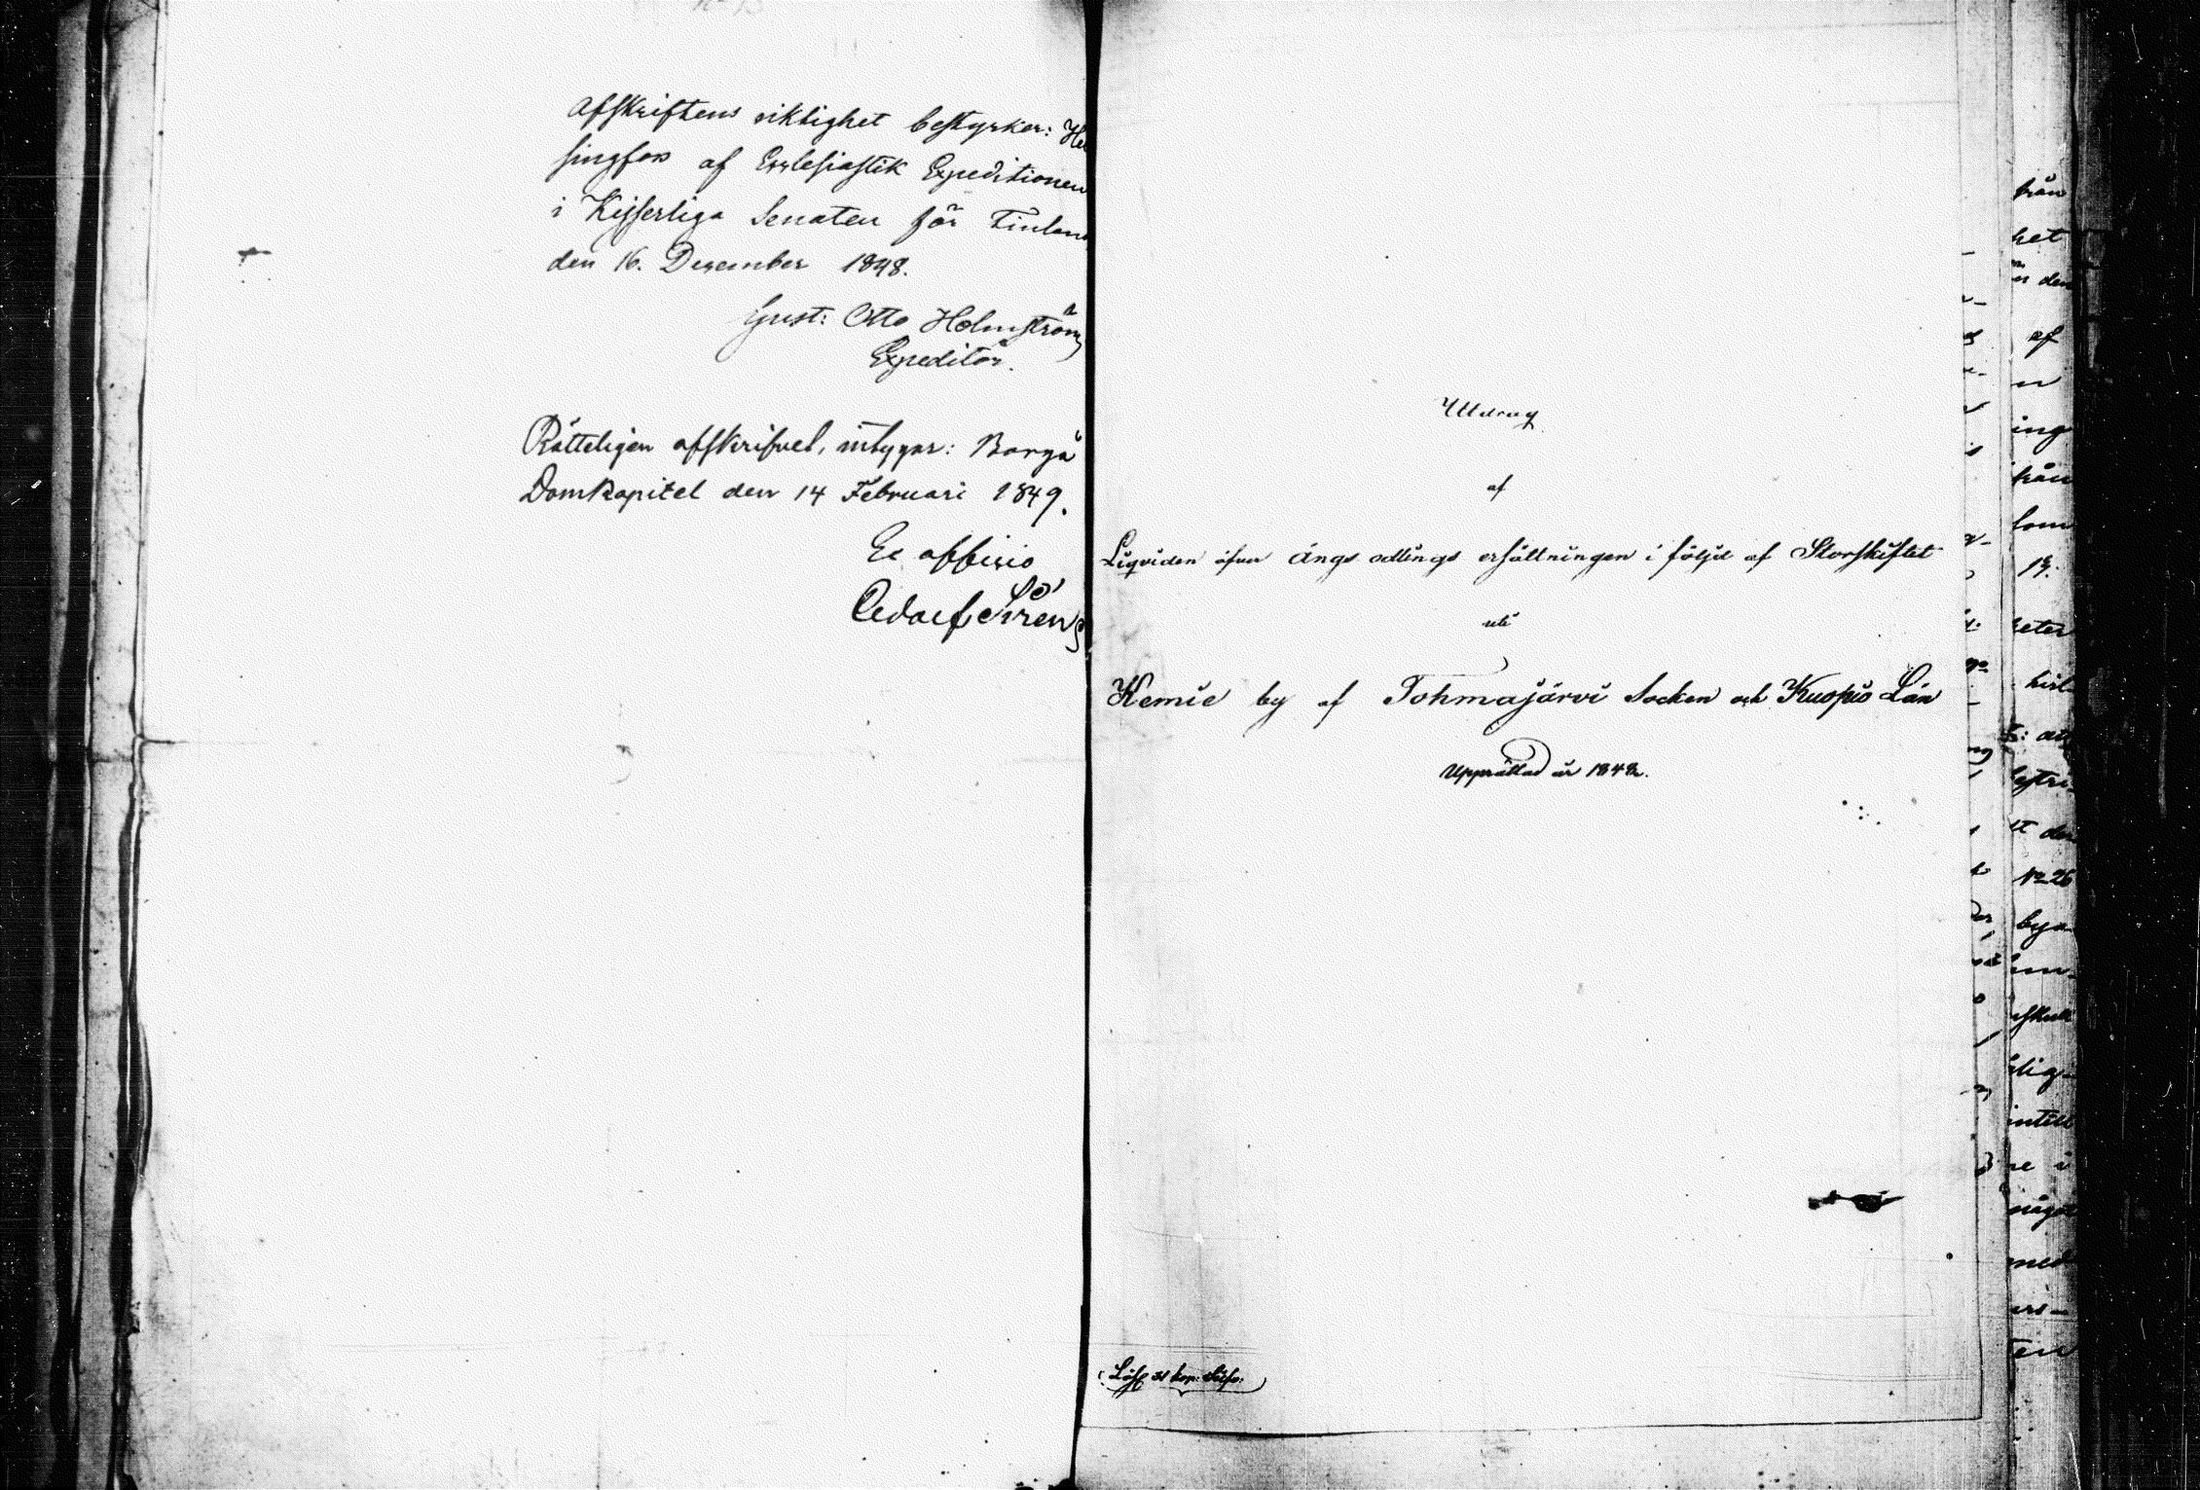 Afskriftens riktighet bestyrker: Hel
singfors af Ecclesiastik Expeditionen
i Kejserliga Senaten för Finland
den 16. December 1848.
Gust: Otto Holmström
Expeditör.
Rätteligen afskrifvet, intygar: Borgå
Domkapitel den 14 Februari 1849.
Ex officio
Sirén
Utdrag
af
Liqviden öfver ängs odlings ersättningen i följd af Storskiftet
uti
Kemie by af Tohmajärvi Socken och Kuopio Län
Upprättad år 1848.
från
het
den
af
n
ing
från
som
13.
heter
hist
bestri-
t den
No 26
bya
lig-
intill
re i
något
med
ers-
ten